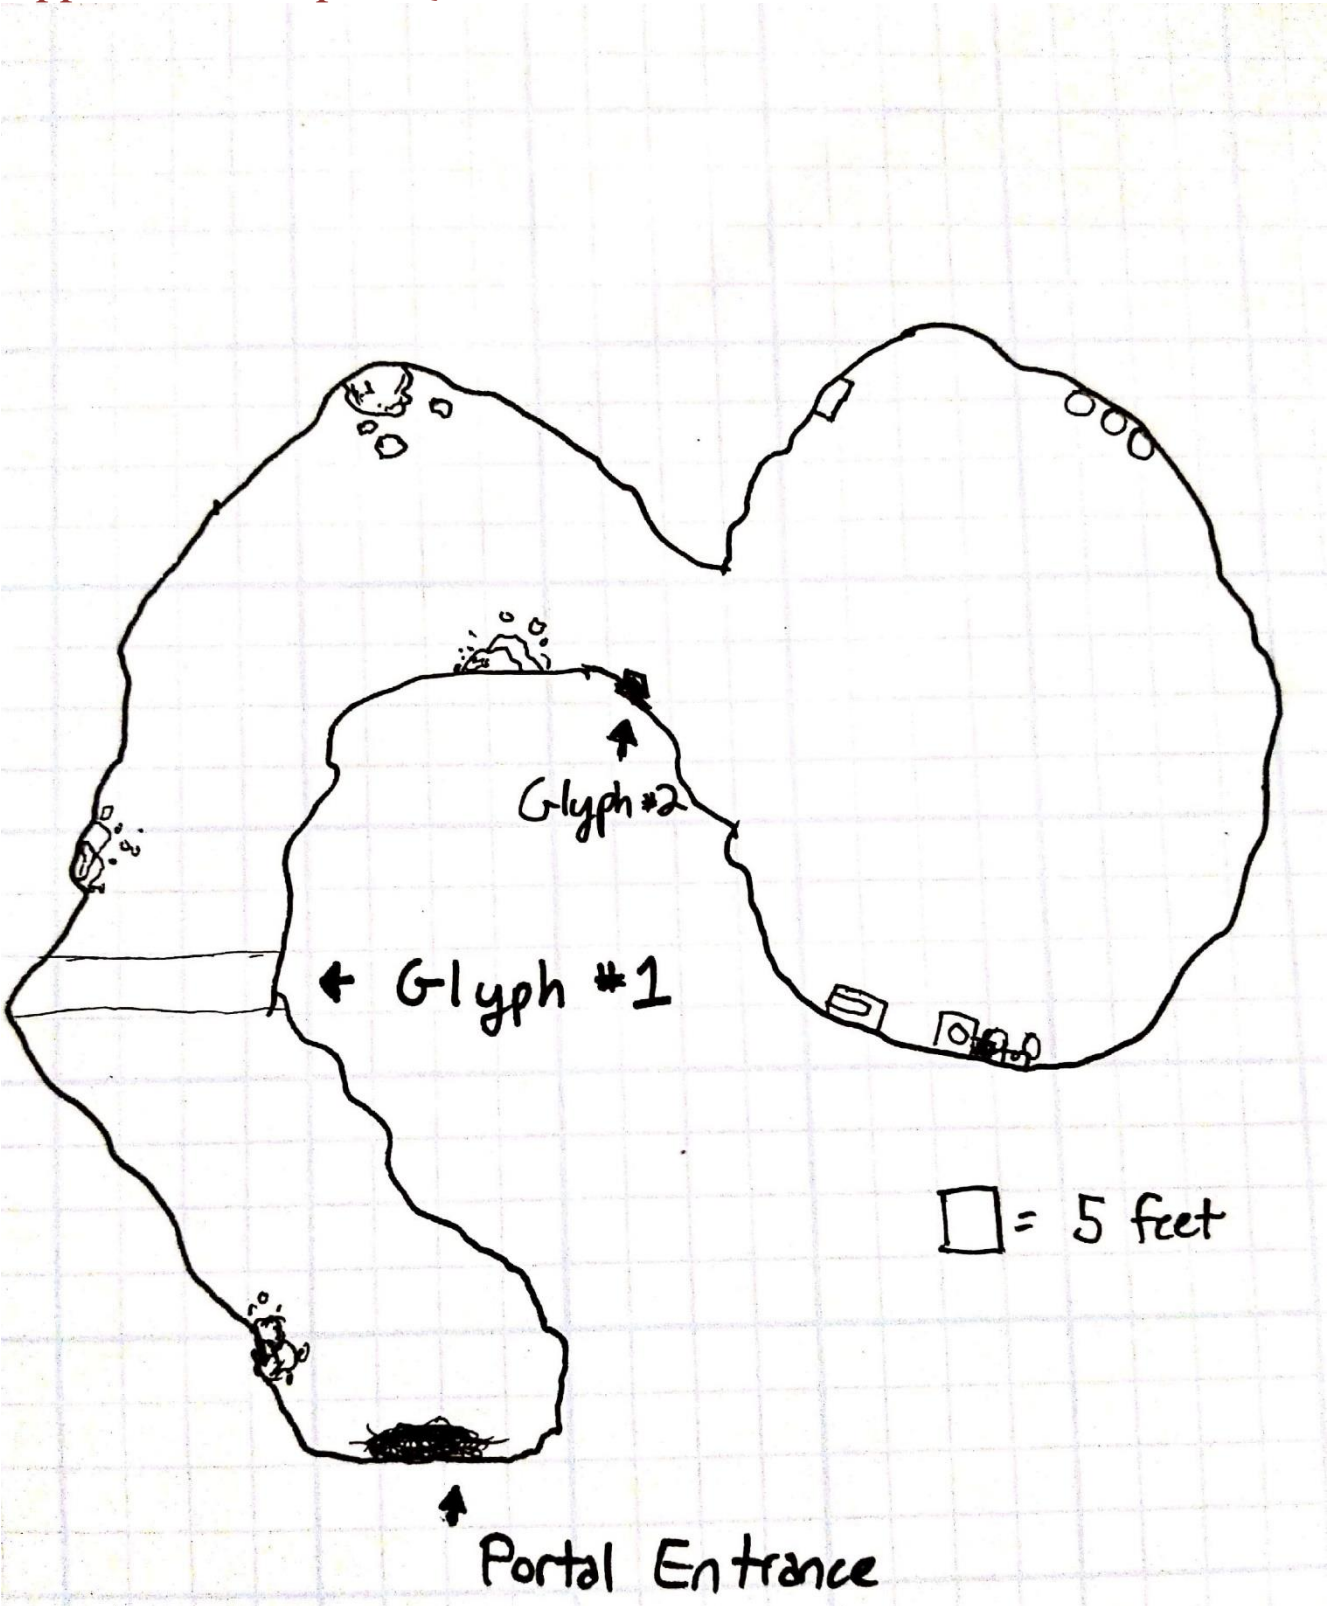 Glyph #2
← Glyph #1
= 5 feet
Portal Entrance